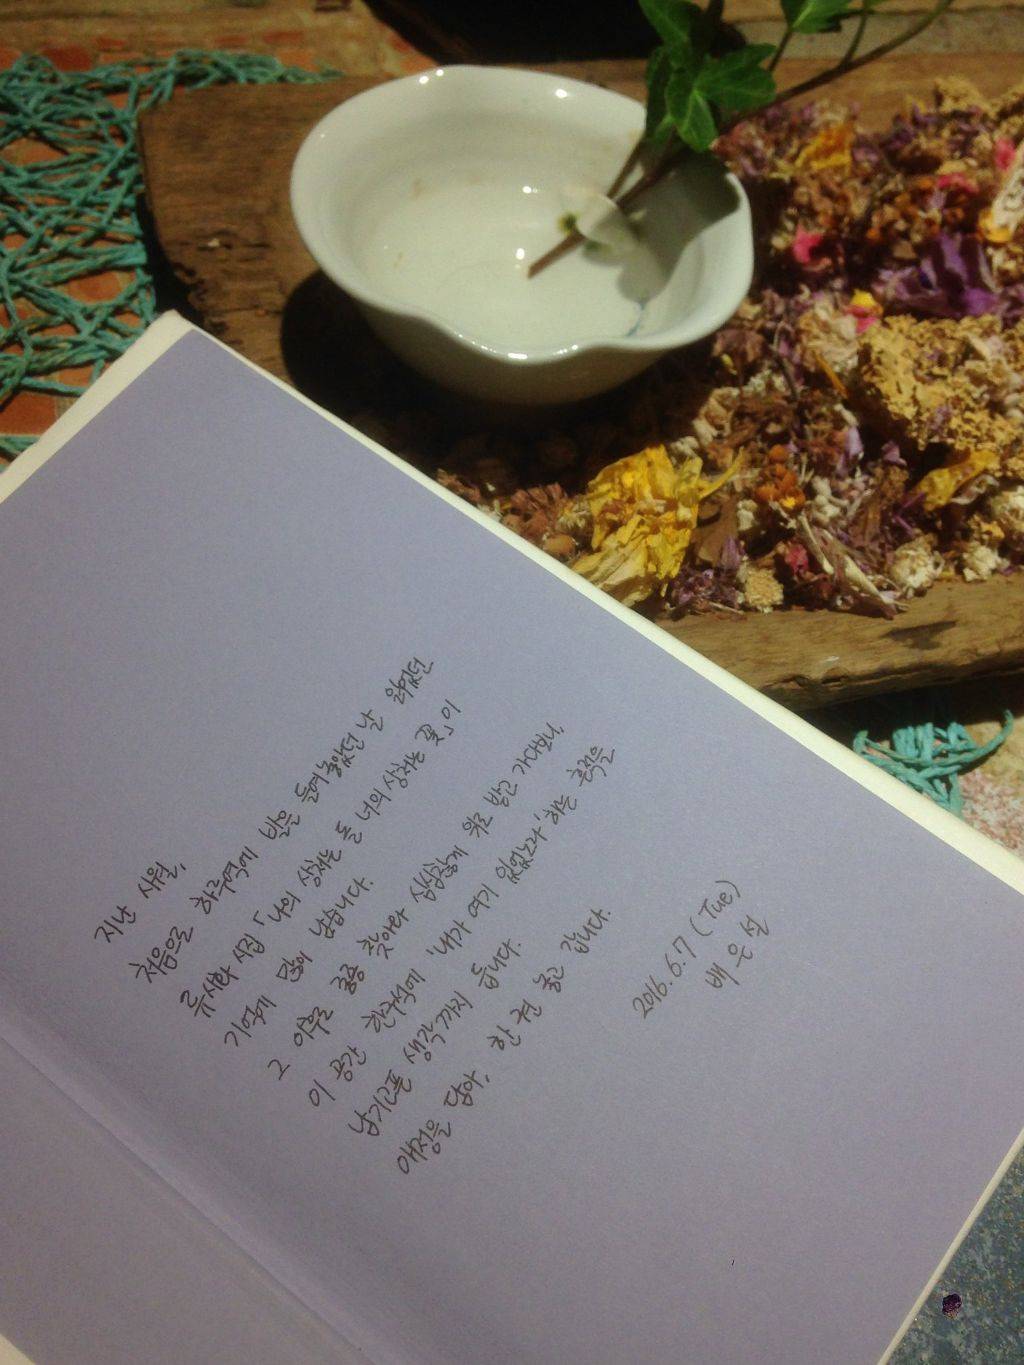 지난 사월,
처음으로 하루엮에 발을 들여놓았던 날 읽었던
류시화 시집 「나의 상처는 돌 너의 상처는 꽃」이
기억에 많이 남습니다.
그 이후로 종종 찾아와 심심찮게 위로 받고 가다보니,
이 공간 한구석에 '내가 여기 있었노라' 하는 흔적을
남기고픈 생각까지 듭니다.
애정을 담아, 한 권 놓고 갑니다.
2016. 6. 7 (Tue)
배 은 설